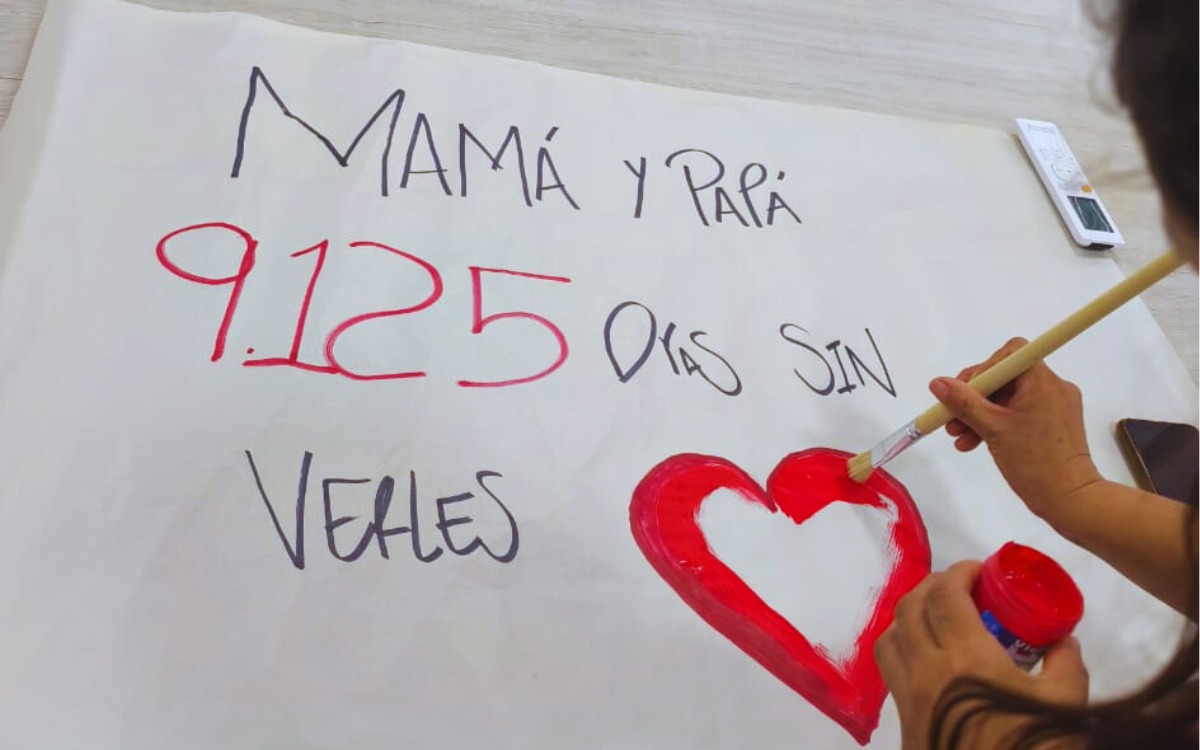 MAMÁ Y PAPÁ
9.125 DYAS SIN
VERLES